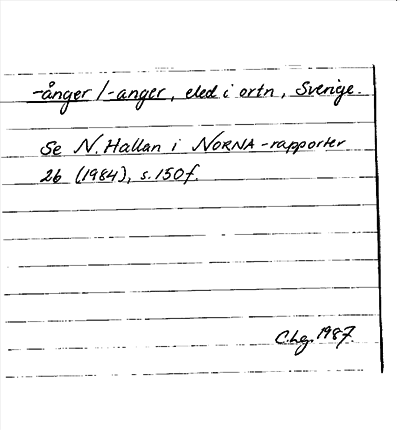 -ånger/-anger, eled i ortn, Sverige.
Se N. Hallan i NORNA-rapporter
26 (1984), s. 150 f.
C.Lg. 1987.